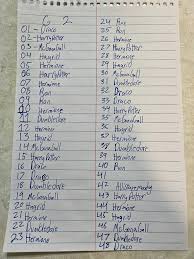 G 2
01 - Draco
02 - Harry Potter
03 - McGonagall
04 - Hagrid
05 - Hermine
06 - Harry Potter
07 Hermine
08 Ron
09 Ron
10 Hermine
11 Dumbledore
12 Hermine
13 Hagrid
14 McGonagall
15 Harry Potter
16 Harry Potter
17 Draco
18 Dumbledore
19 McGonagall
20 Hagrid
21 Hermine
22 Dumbledore
23 Hermine
24 Ron
25 Ron
26 Hermine
27 Harry Potter
28 McGonagall
29 Harry Potter
30 Hagrid
31 Dumbledore
32 Draco
33 Draco
34 Hagrid
35 Hermine
36 Hagrid
37 Harry Potter
38 Dumbledore
39 McGonagall
40 Ron
41
42 Harry Potter
43 Hermine
44 McGonagall
45 Hagrid
46 McGonagall
47 Dumbledore
48 Draco